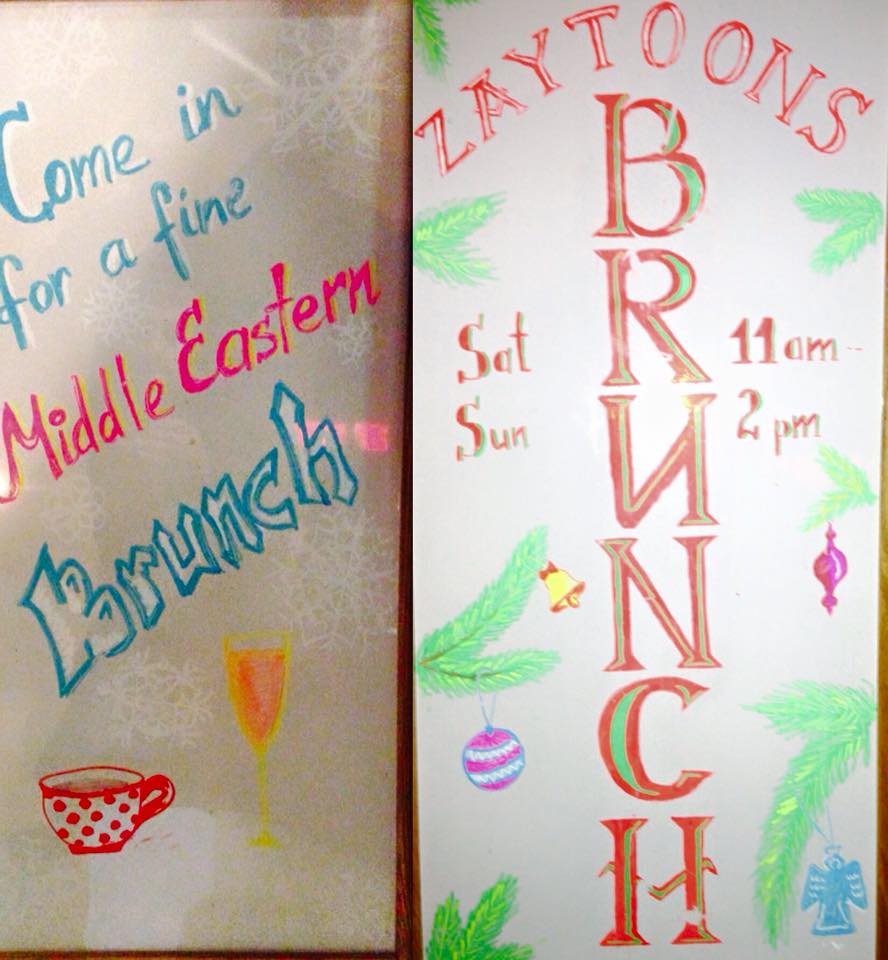 Come in
for a fine
Middle Eastern
Brunch
ZAYTOONS
BRUNCH
Sat 11am-
Sun 2pm